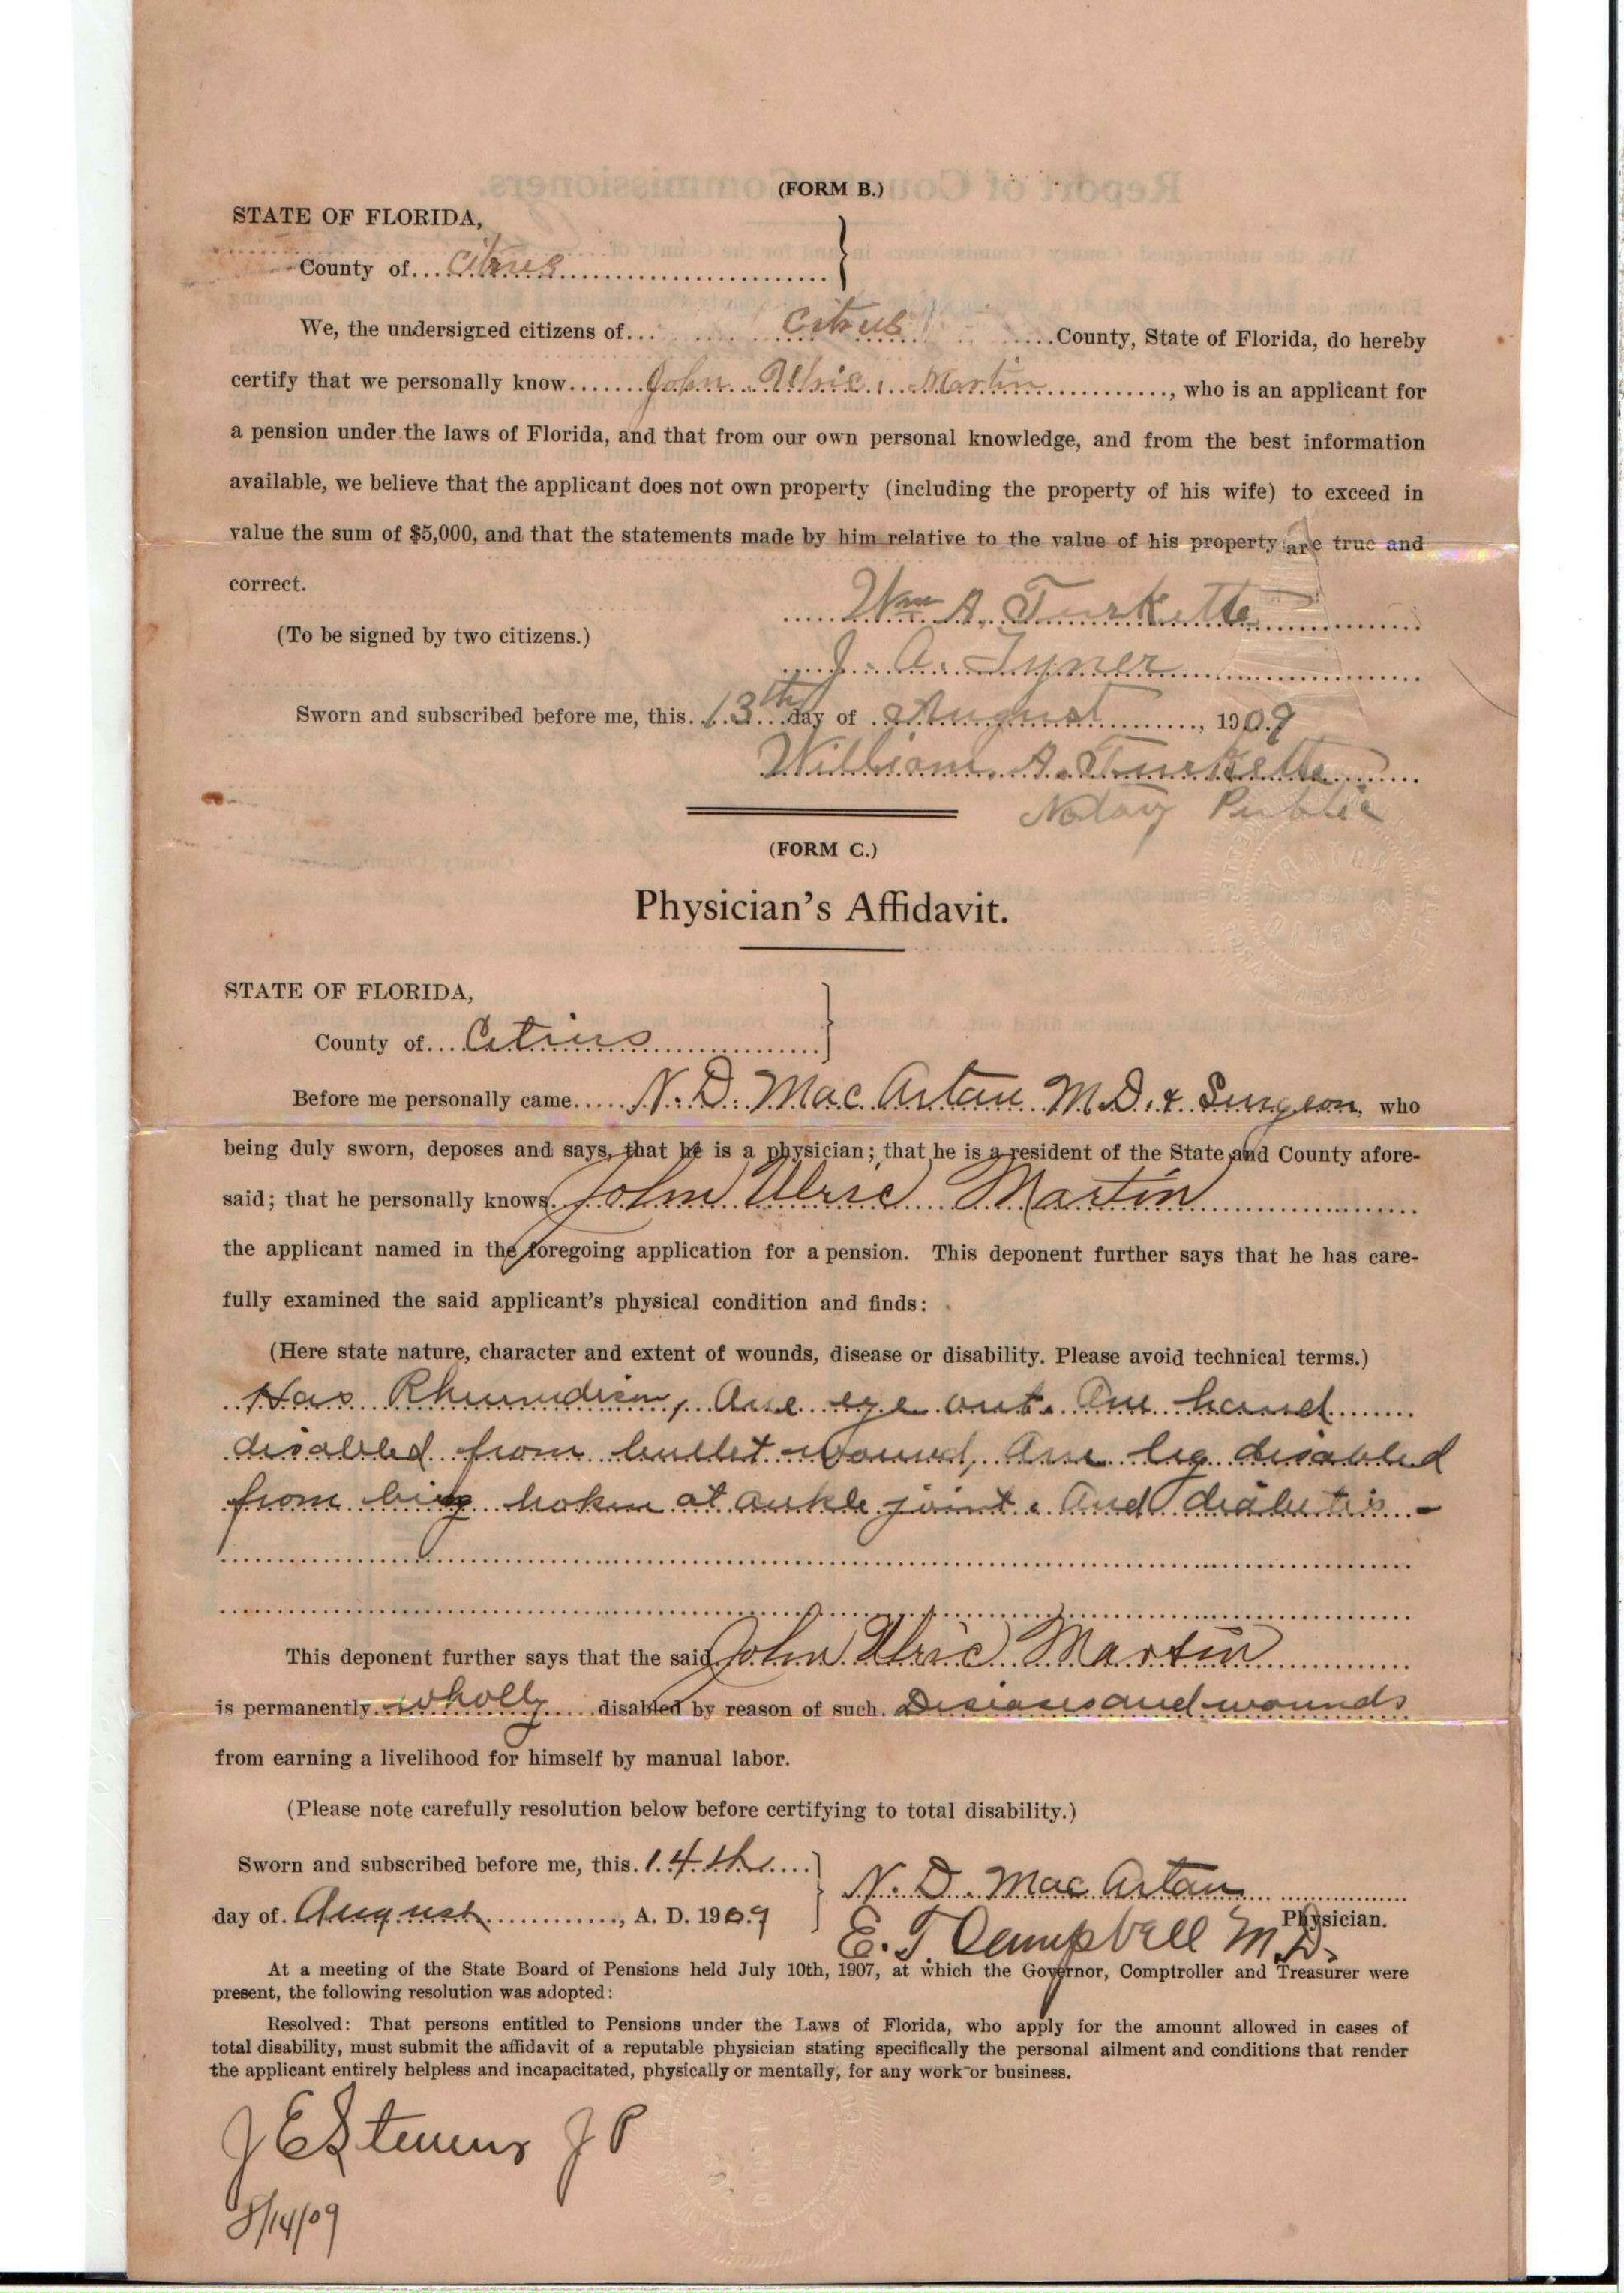 (FORM B.)
STATE OF FLORIDA,
County of Citrus
We, the undersigned citizens of Citrus County, State of Florida, do hereby
certify that we personally know John Ulric Martin, who is an applicant for
a pension under the laws of Florida, and that from our own personal knowledge, and from the best information
available, we believe that the applicant does not own property (including the property of his wife) to exceed in
value the sum of $5,000, and that the statements made by him relative to the value of his property are true and
correct.
Wm A. Turkette
(To be signed by two citizens.)
J. A. Tyner
Sworn and subscribed before me, this 13th day of August, 1909
William A. Turkette
Notary Public
(FORM C.)
Physician's Affidavit.
STATE OF FLORIDA,
County of Citrus
Before me personally came N. D. Mac Artan M.D. & Surgeon, who
being duly sworn, deposes and says, that he is a physician; that he is a resident of the State and County afore-
said; that he personally knows John Ulric Martin
the applicant named in the foregoing application for a pension. This deponent further says that he has care-
fully examined the said applicant's physical condition and finds:
(Here state nature, character and extent of wounds, disease or disability. Please avoid technical terms.)
Has , One eye out. One hand
disabled from bullet wound, One leg disabled
from being broken at ankle joint. And diabetis -
This deponent further says that the said John Ulric Martin
is permanently wholly disabled by reason of such Diseases and wounds
from earning a livelihood for himself by manual labor.
(Please note carefully resolution below before certifying to total disability.)
Sworn and subscribed before me, this 14th
N. D. Mac Artan
day of August, A. D. 1909
Physician.
E. T. Campbell M.D.
At a meeting of the State Board of Pensions held July 10th, 1907, at which the Governor, Comptroller and Treasurer were
present, the following resolution was adopted:
Resolved: That persons entitled to Pensions under the Laws of Florida, who apply for the amount allowed in cases of
total disability, must submit the affidavit of a reputable physician stating specifically the personal ailment and conditions that render
the applicant entirely helpless and incapacitated, physically or mentally, for any work or business.
J E Stevens J P
8/14/09